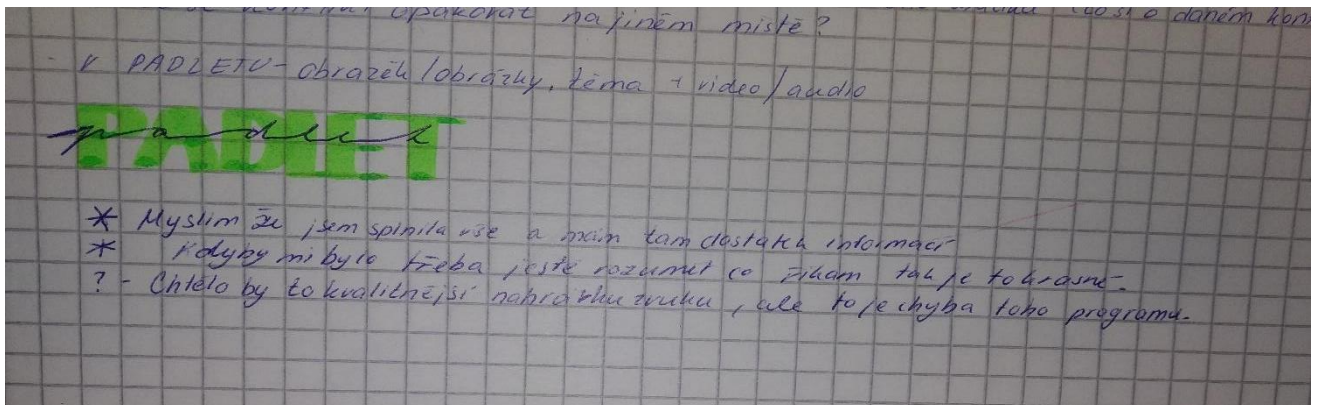 opakovat na jiném místě? o daném kon
v PADLETU - obrázek/obrázky, téma + video/audio
PADLET
padlet
* Myslim že jsem splnila vše a mám tam dostatek informací
* Kdyby mi bylo třeba ještě rozumět co řikam tak je to krásné.
? - Chtělo by to kvalitnější nahrávku zvuku, ale to je chyba toho programu.